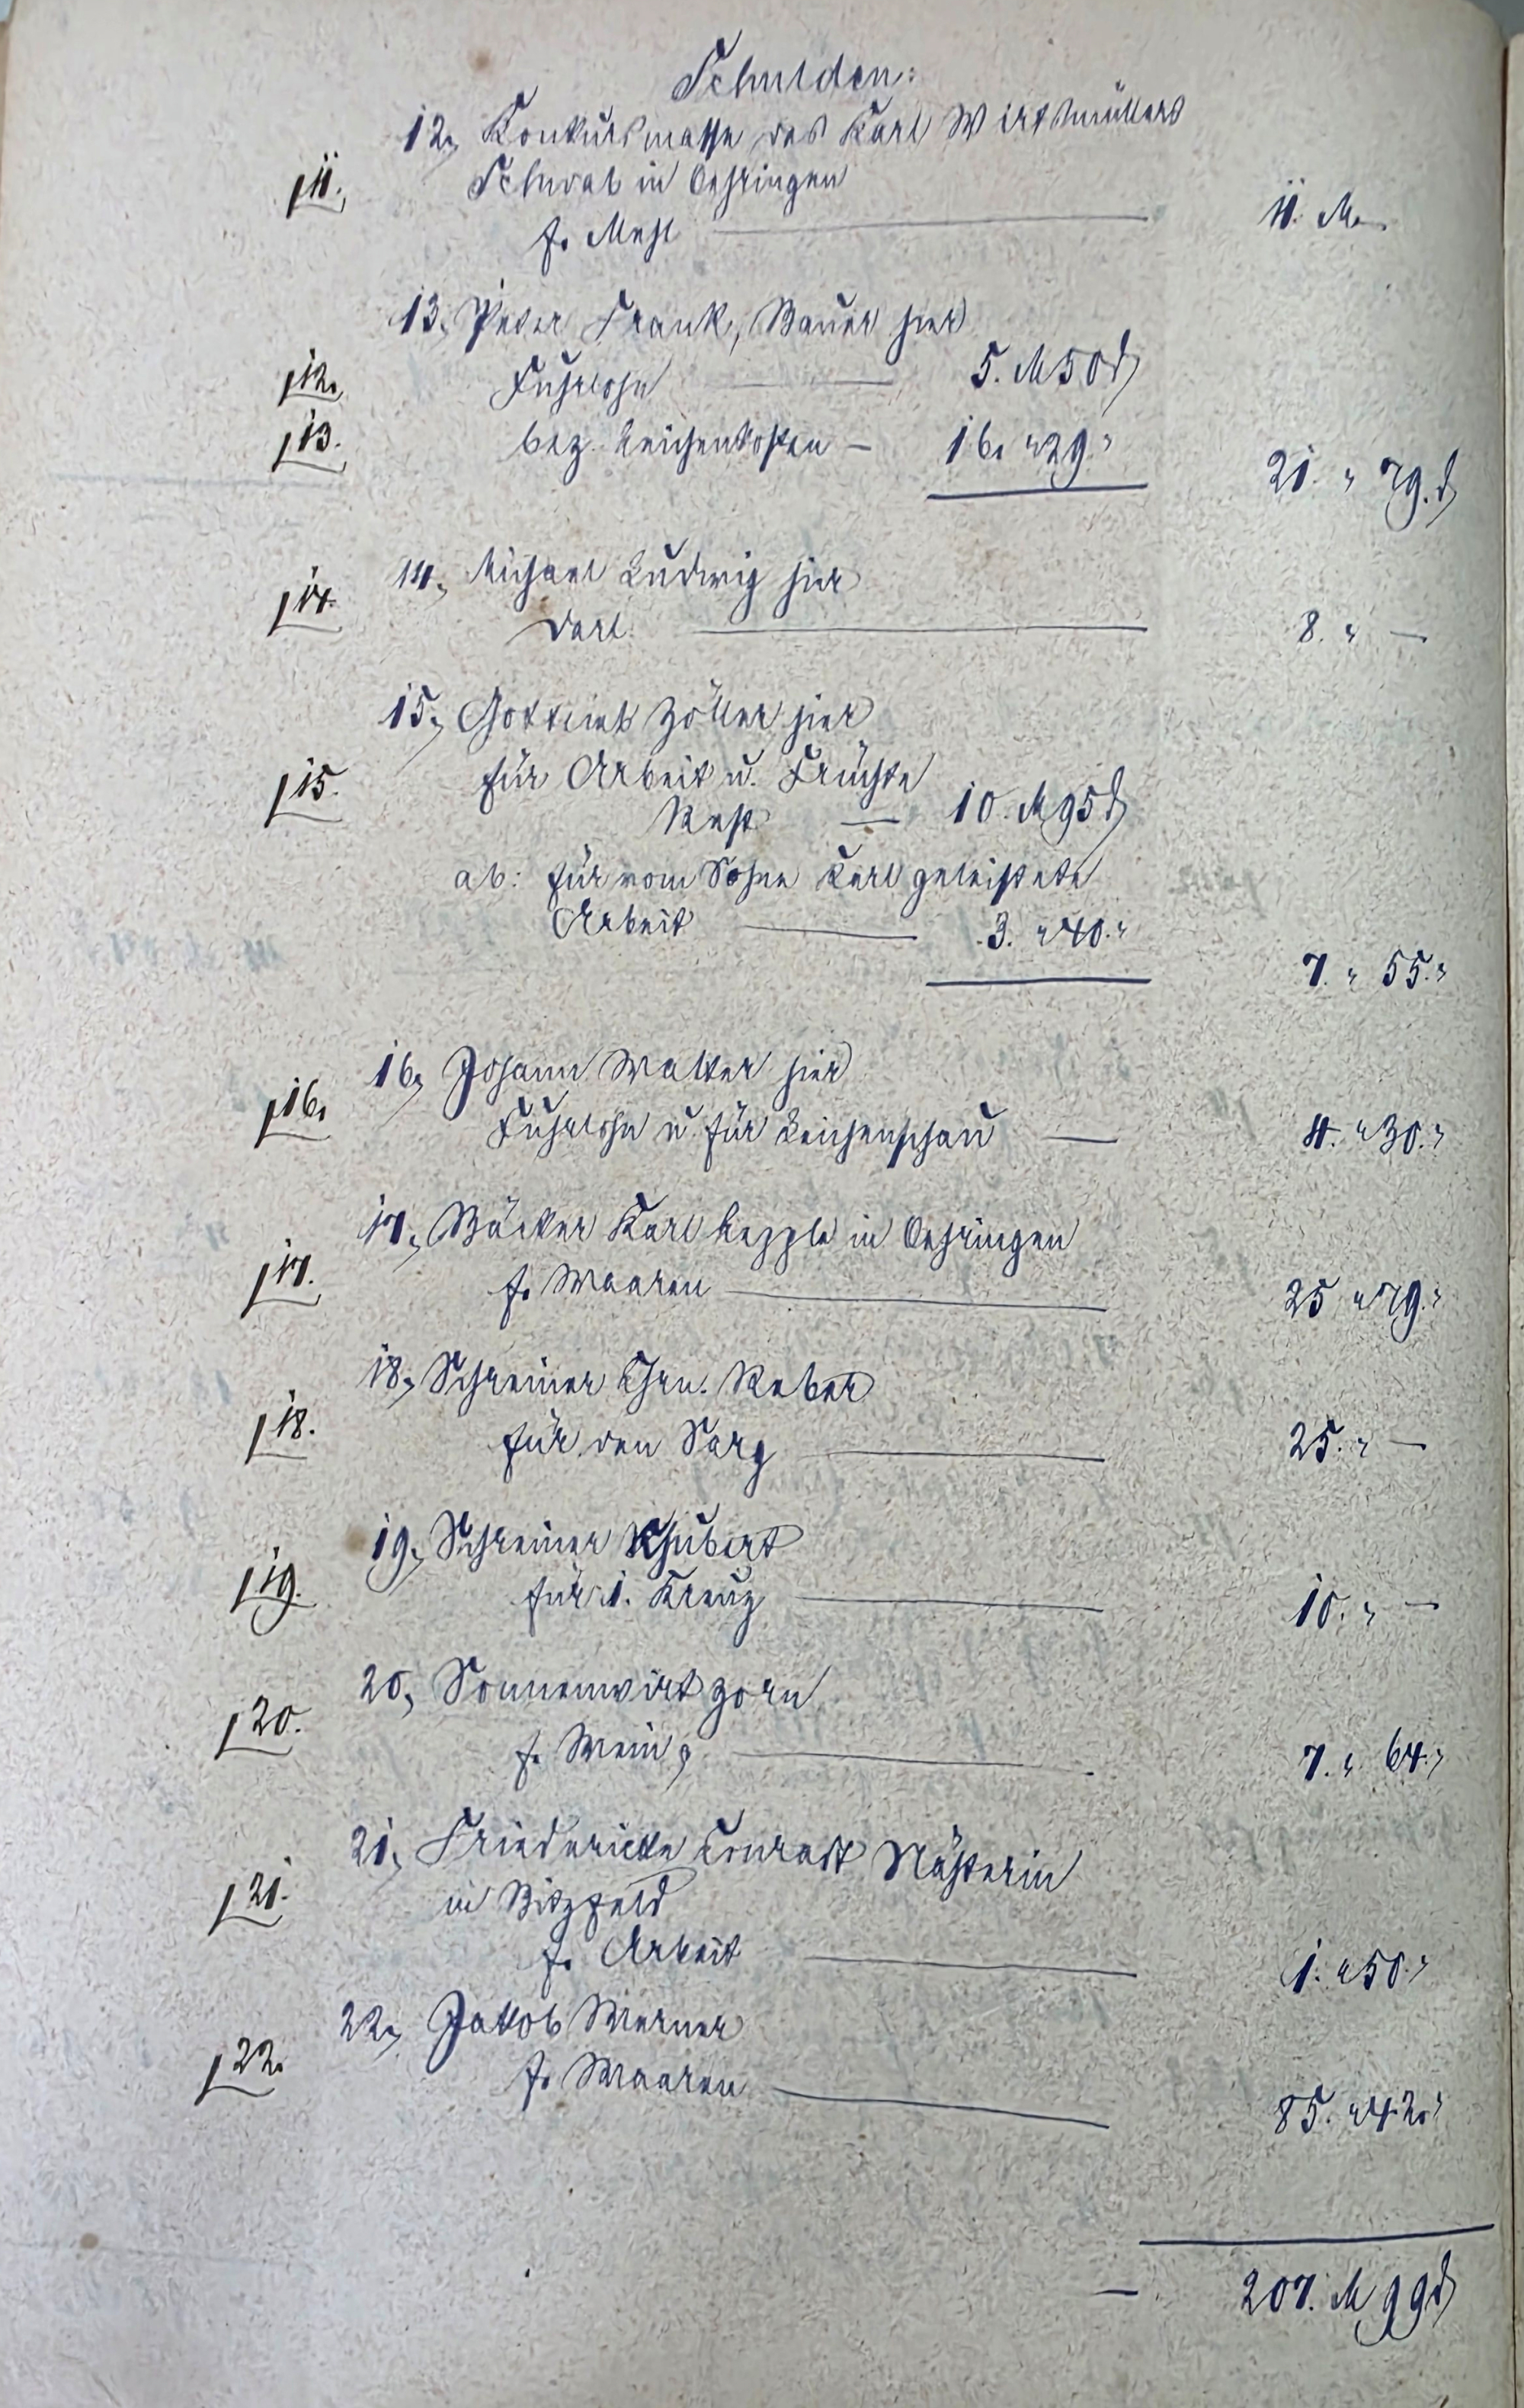 Schulden:
12, Konkursmasse des Karl Wirthmüllers
/11. Schwab in Oehringen
f. Mehl — 11. M —
13. Peter Frank, Bauer hier
/12. Fuhrlohn — 5. M 50 ₰
/13. bez. Leichenkosten — 16. " 29. "
21. " 79. ₰
14, Michael Ludwig hier
/14. Darl. — 8. " —
15, Gottlieb Zöller hier
/15. für Arbeit u. Früchte
Rest — 10. M 95 ₰
ab: für vom Sohne Karl geleistete
Arbeit — 3. " 40. "
7. " 55. "
16, Johann Walter hier
/16. Fuhrlohn u. für Leichenschau — 4. " 30. "
17, Bäcker Karl Lepple in Oehringen
/17. f. Waaren — 25 " 79. "
18, Schreiner Chrn. Reber
/18. für den Sarg — 25. " —
19, Schreiner Schubert
/19. für 1. Kreuz — 10. " —
20, Sonnenwirt Zorn
/20. f. Wein — 7. " 64. "
21, Friedericke Conradt Nähterin
/21. in Bitzfeld
f. Arbeit — 1. " 50. "
22, Jakob Werner
/22. f. Waaren — 85. " 42. "
— 207. M 99 ₰